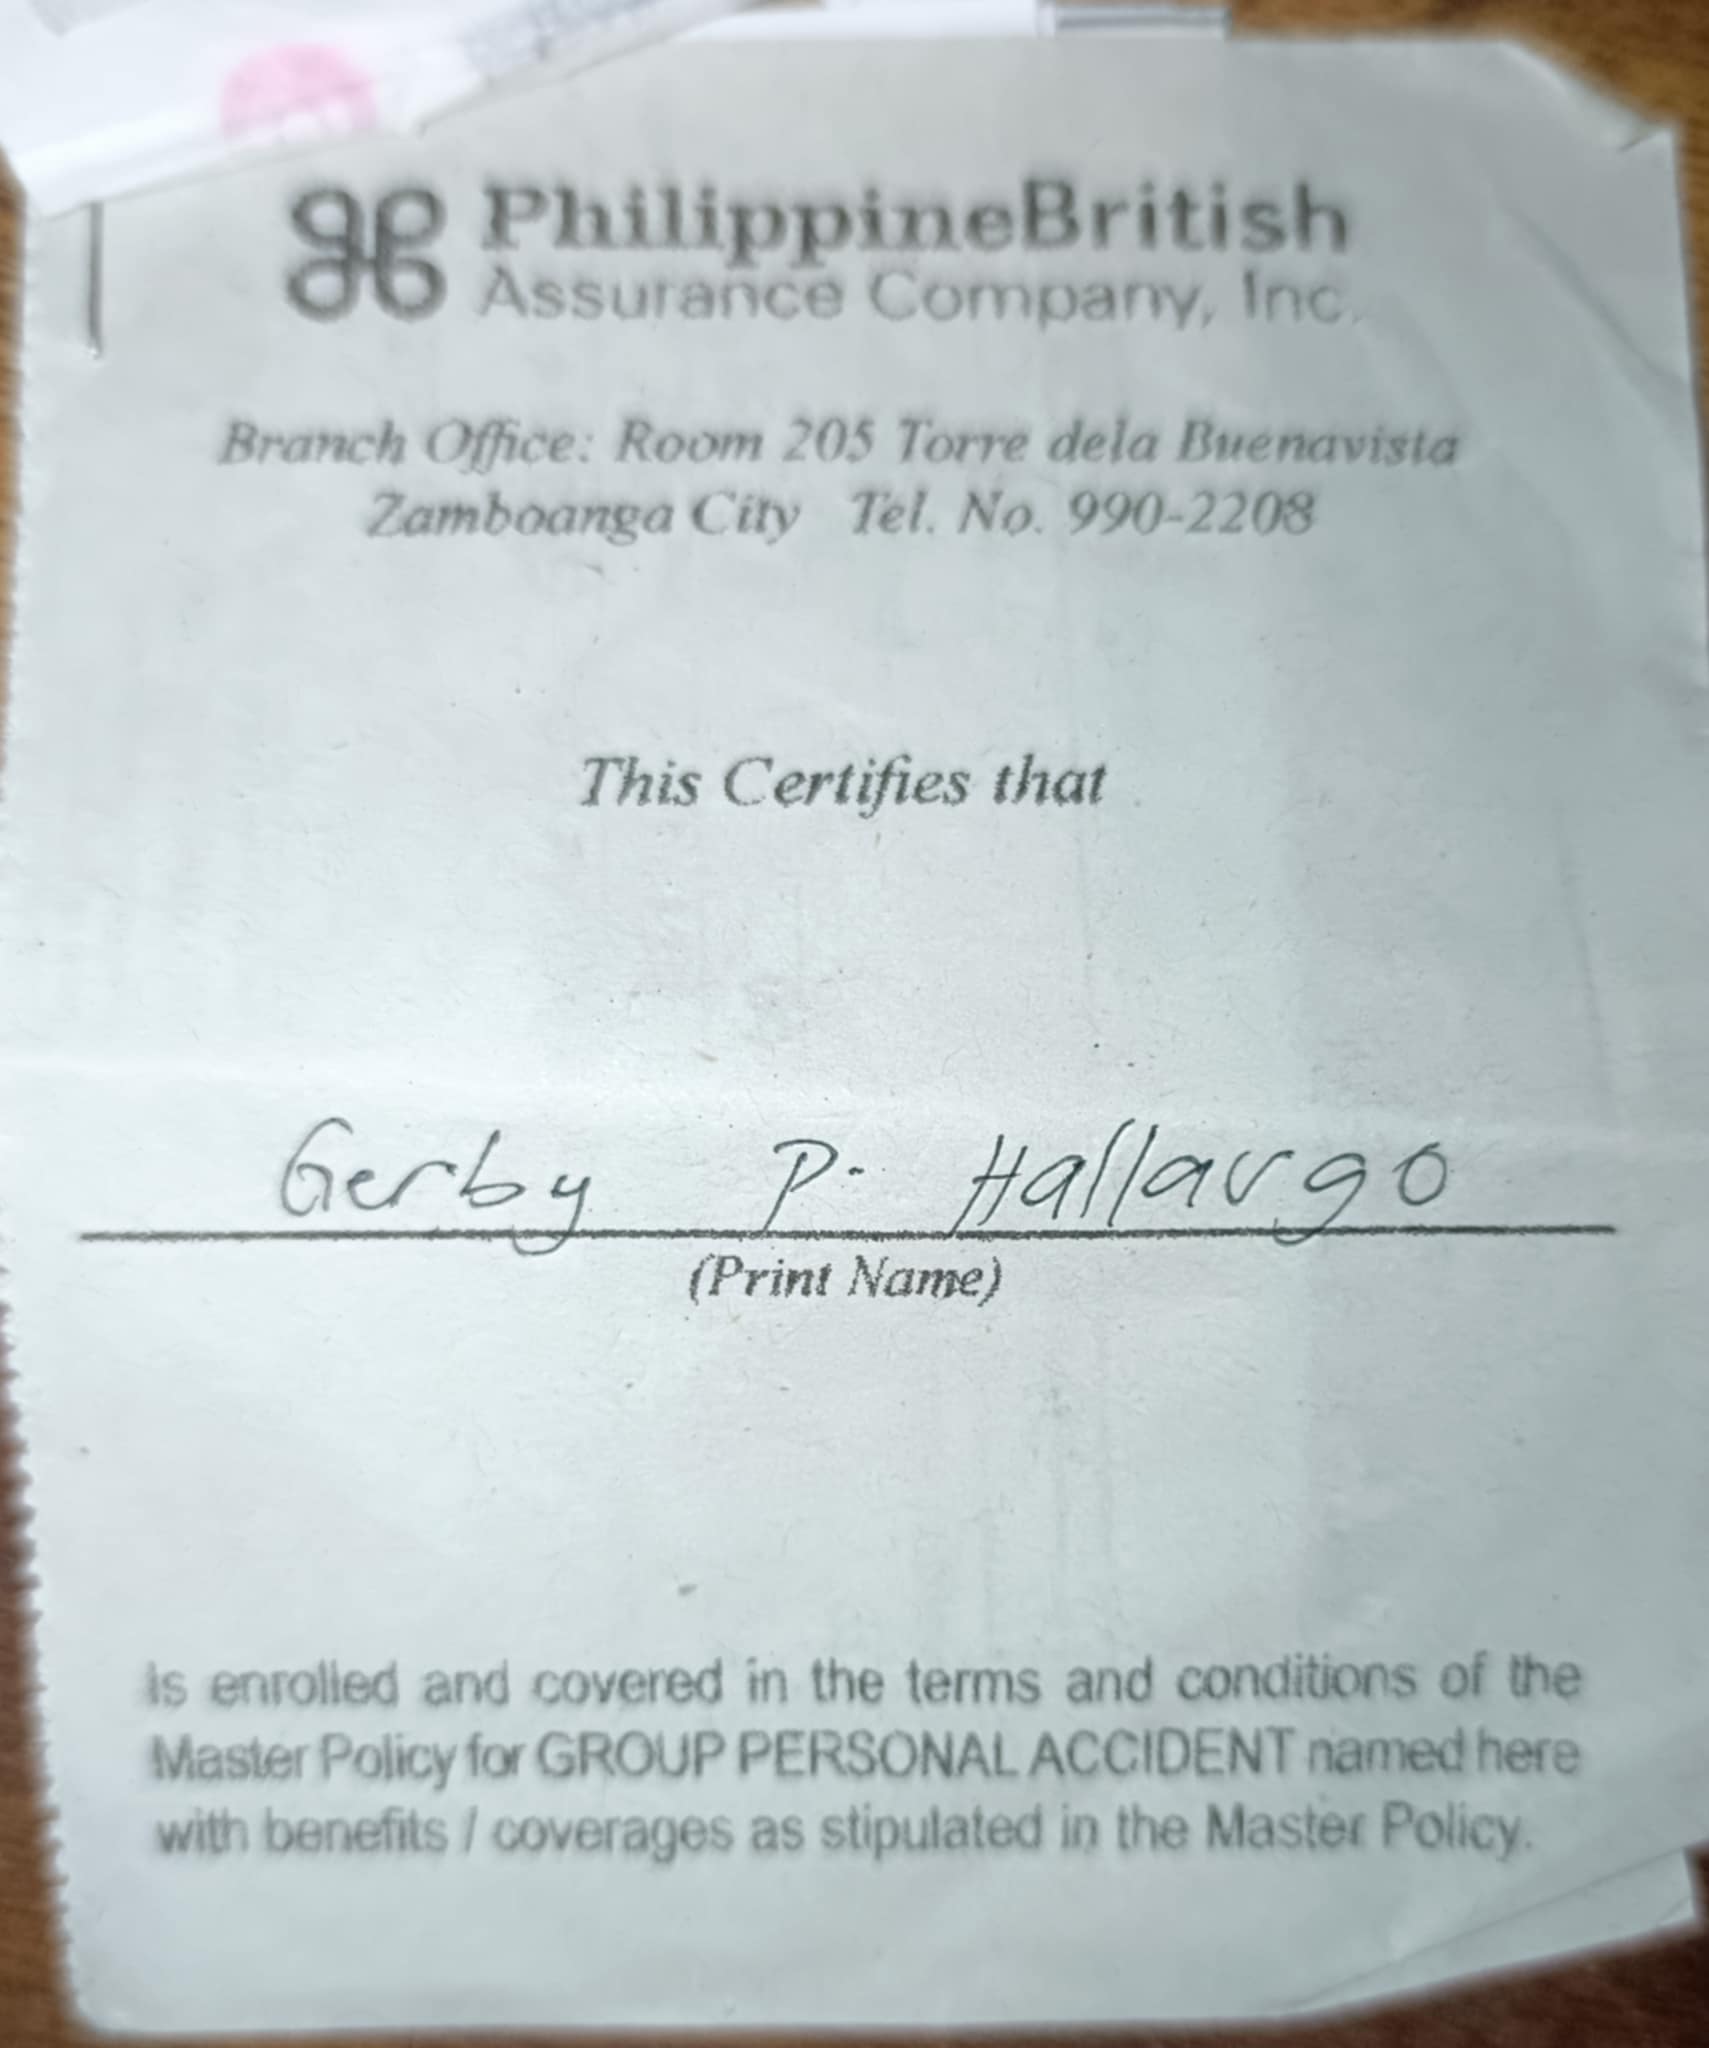 PhilippineBritish
Assurance Company, Inc.
Branch Office: Room 205 Torre dela Buenavista
Zamboanga City Tel. No. 990-2208
This Certifies that
Gerby P. Hallargo
(Print Name)
is enrolled and covered in the terms and conditions of the
Master Policy for GROUP PERSONAL ACCIDENT named here
with benefits / coverages as stipulated in the Master Policy.